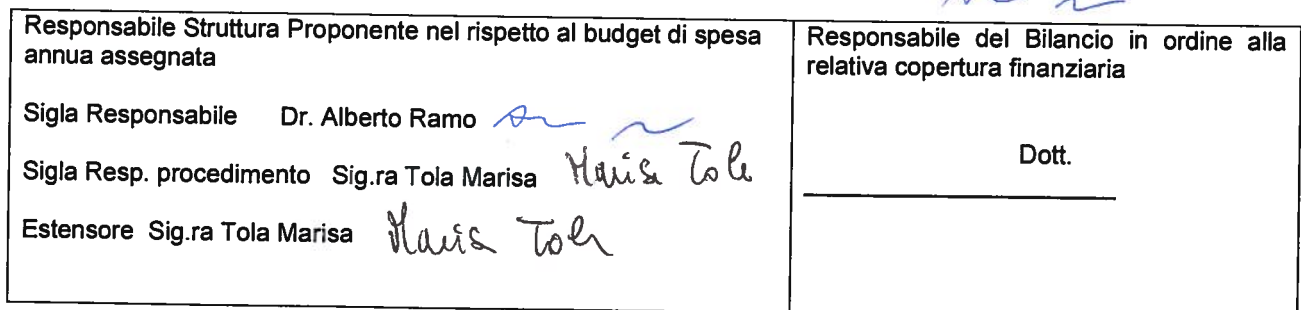 Responsabile Struttura Proponente nel rispetto al budget di spesa
annua assegnata
Sigla Responsabile Dr. Alberto Ramo
Sigla Resp. procedimento Sig.ra Tola Marisa Marisa Tola
Estensore Sig.ra Tola Marisa Marisa Tola
Responsabile del Bilancio in ordine alla
relativa copertura finanziaria
Dott.